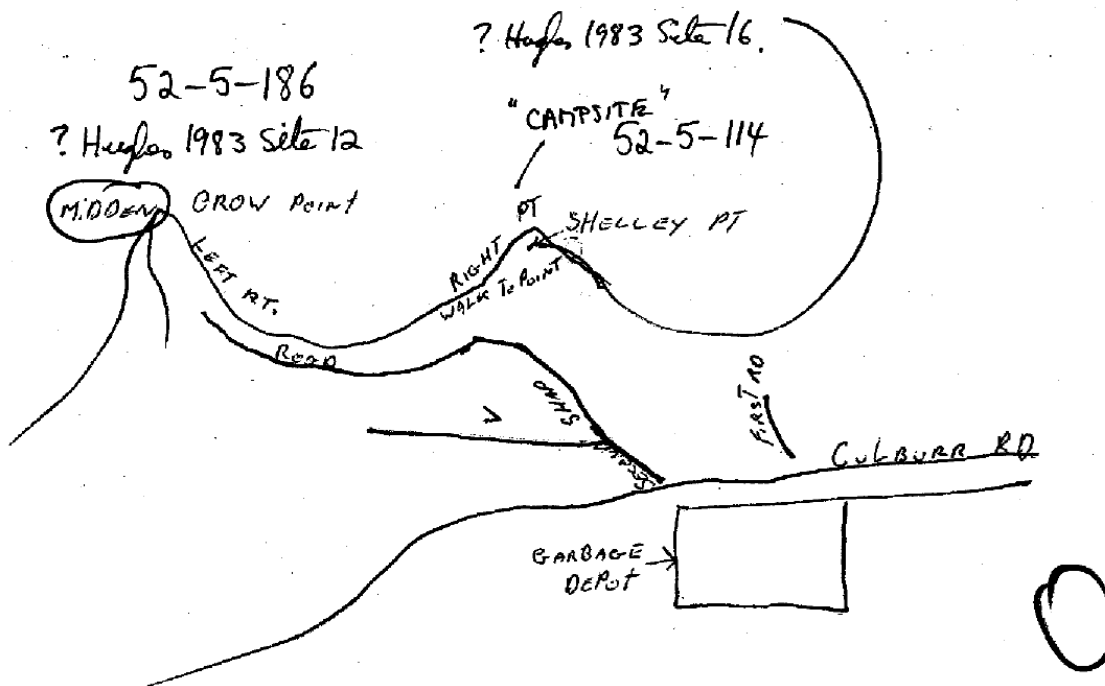 ? Hughes 1983 Site 16.
52-5-186
"CAMPSITE"
? Hughes 1983 Site 12
52-5-114
MiDDEN
CROW POINT
PT
SHELLEY PT
LEFT RT.
RIGHT
WALK To POINT
ROAD
FIRST RD
CULBURR RD
GARBAGE
DEPOT